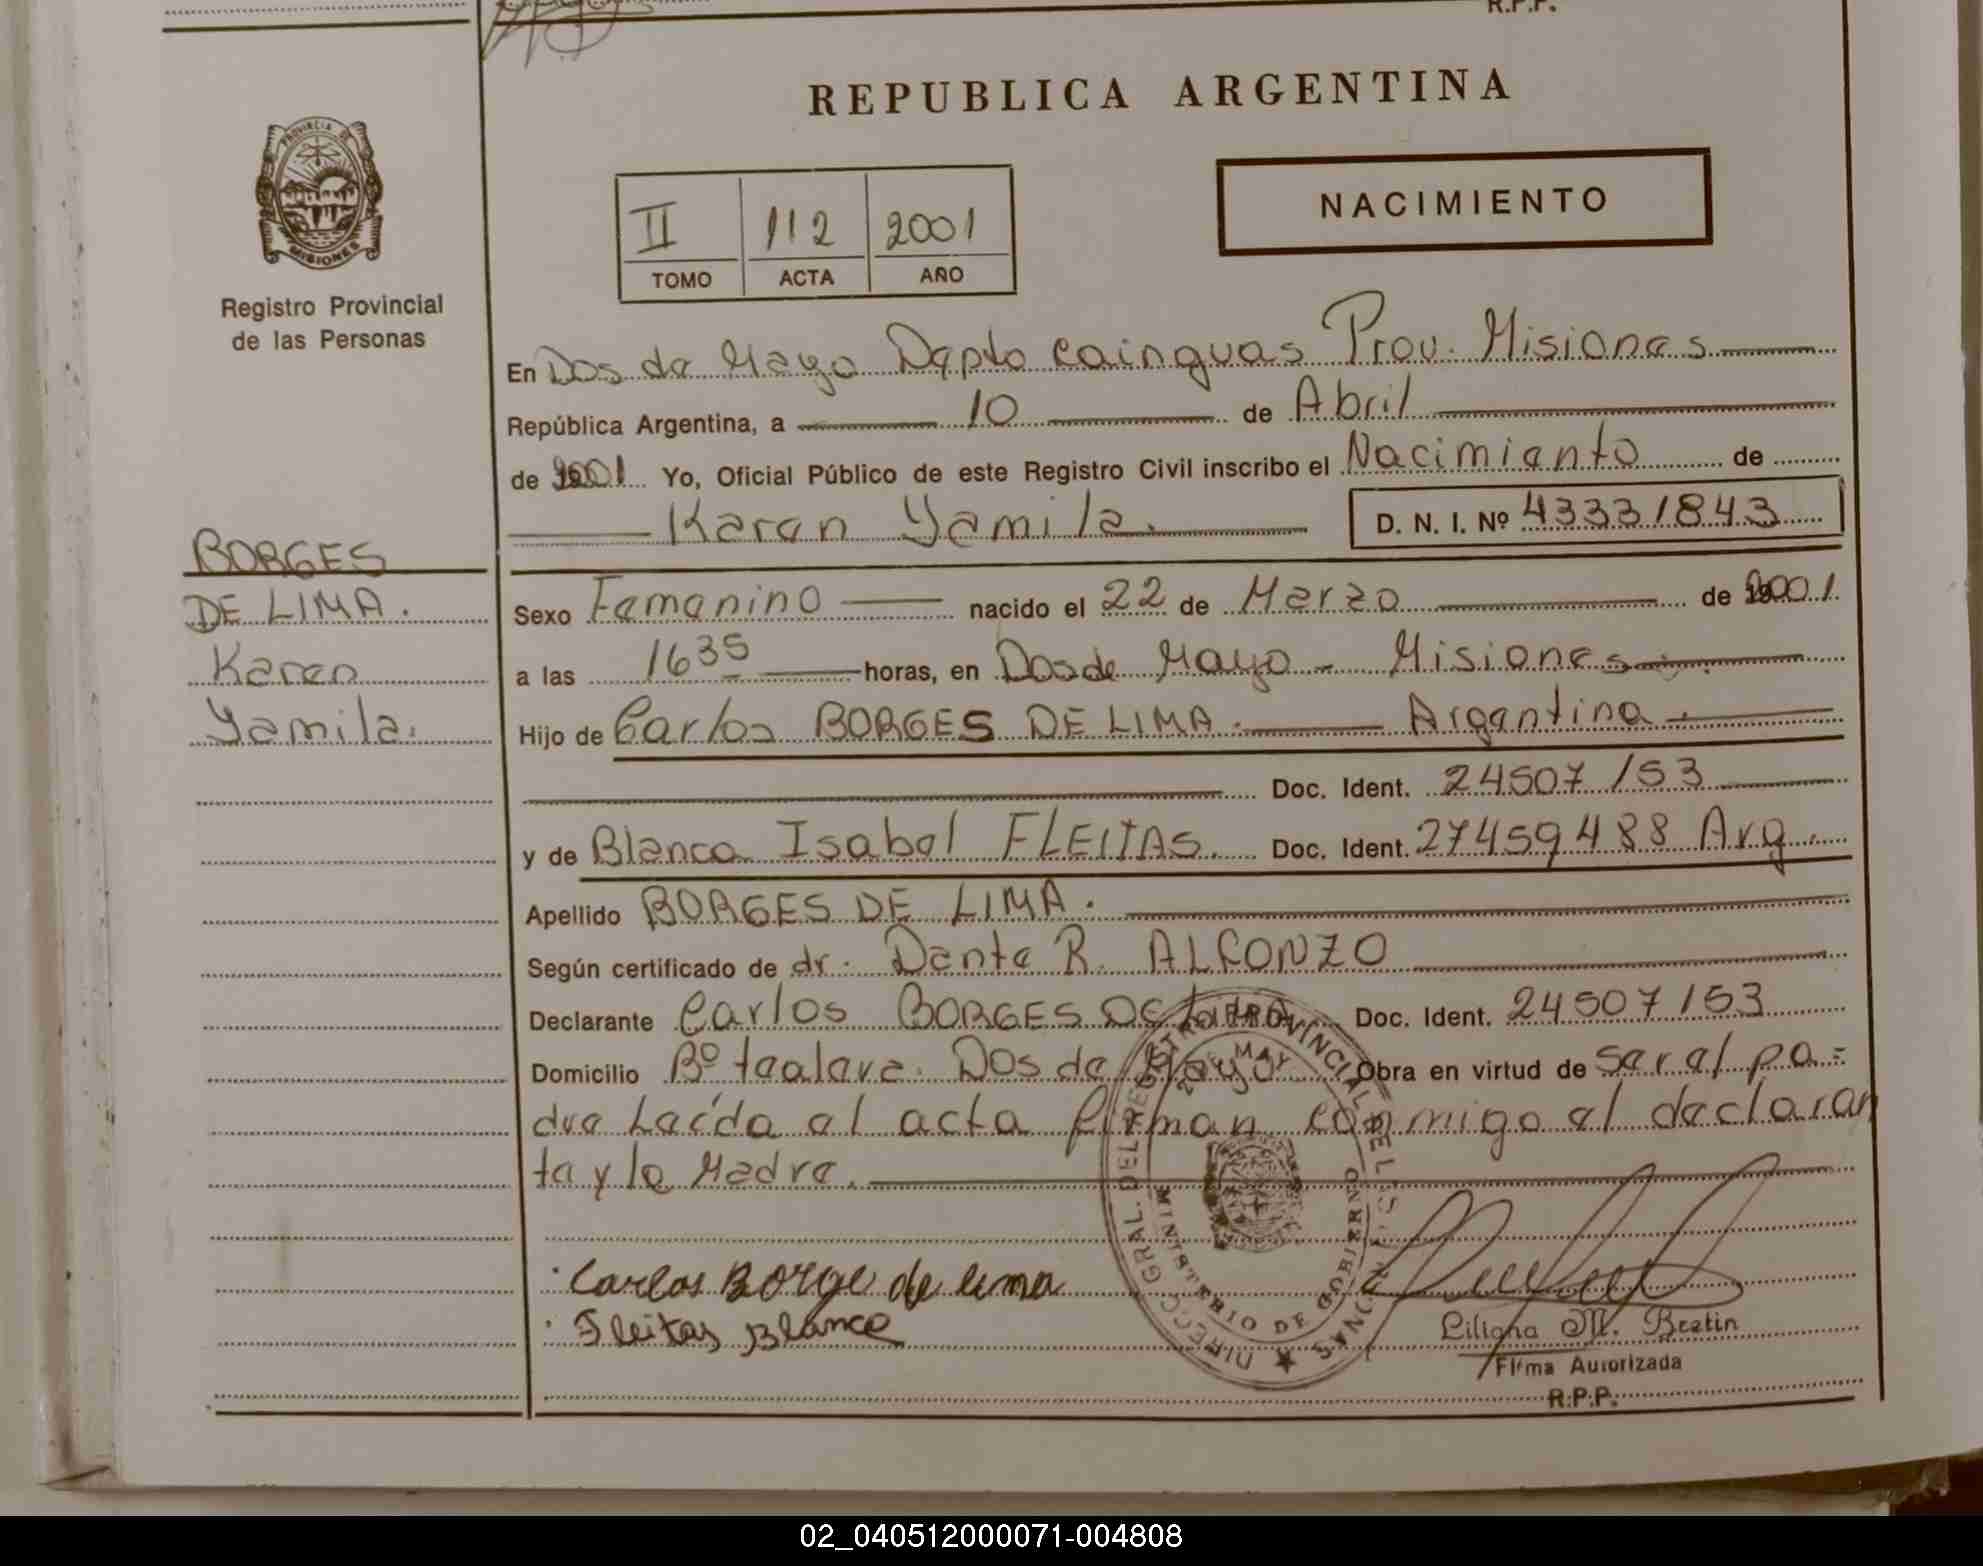 R.P.P.
REPUBLICA ARGENTINA
PROVINCIA DE
MISIONES
Registro Provincial
de las Personas
II 112 2001
TOMO ACTA AÑO
NACIMIENTO
En Dos de Mayo Depto cainguas Prov. Misiones
República Argentina, a 10 de Abril
de 2001 Yo, Oficial Público de este Registro Civil inscribo el Nacimiento de
Karen Yamila. D. N. I. Nº 43331843
BORGES
DE LIMA.
Karen
Yamila.
Sexo Femenino nacido el 22 de Marzo de 2001
a las 1635 horas, en Dos de Mayo - Misiones
Hijo de Carlos BORGES DE LIMA. Argentino.
Doc. Ident. 24507153
y de Blanca Isabel FLEITAS. Doc. Ident. 27459488 Arg.
Apellido BORGES DE LIMA.
Según certificado de dr. Dante R. ALFONZO
Declarante Carlos BORGES DE LIMA Doc. Ident. 24507153
Domicilio Bº Dos de Mayo Obra en virtud de ser el pa=
dre Leída el acta firman conmigo el declaran
te y la Madre.
DIRECC. GRAL. DEL REGISTRO PROVINCIAL DE LAS PERSONAS
2 DE MAYO
MINISTERIO DE GOBIERNO
MISIONES
Carlos Borge de lima
Fleitas Blanca
Liliana M. Bretin
Firma Autorizada
R.P.P.
02_040512000071-004808